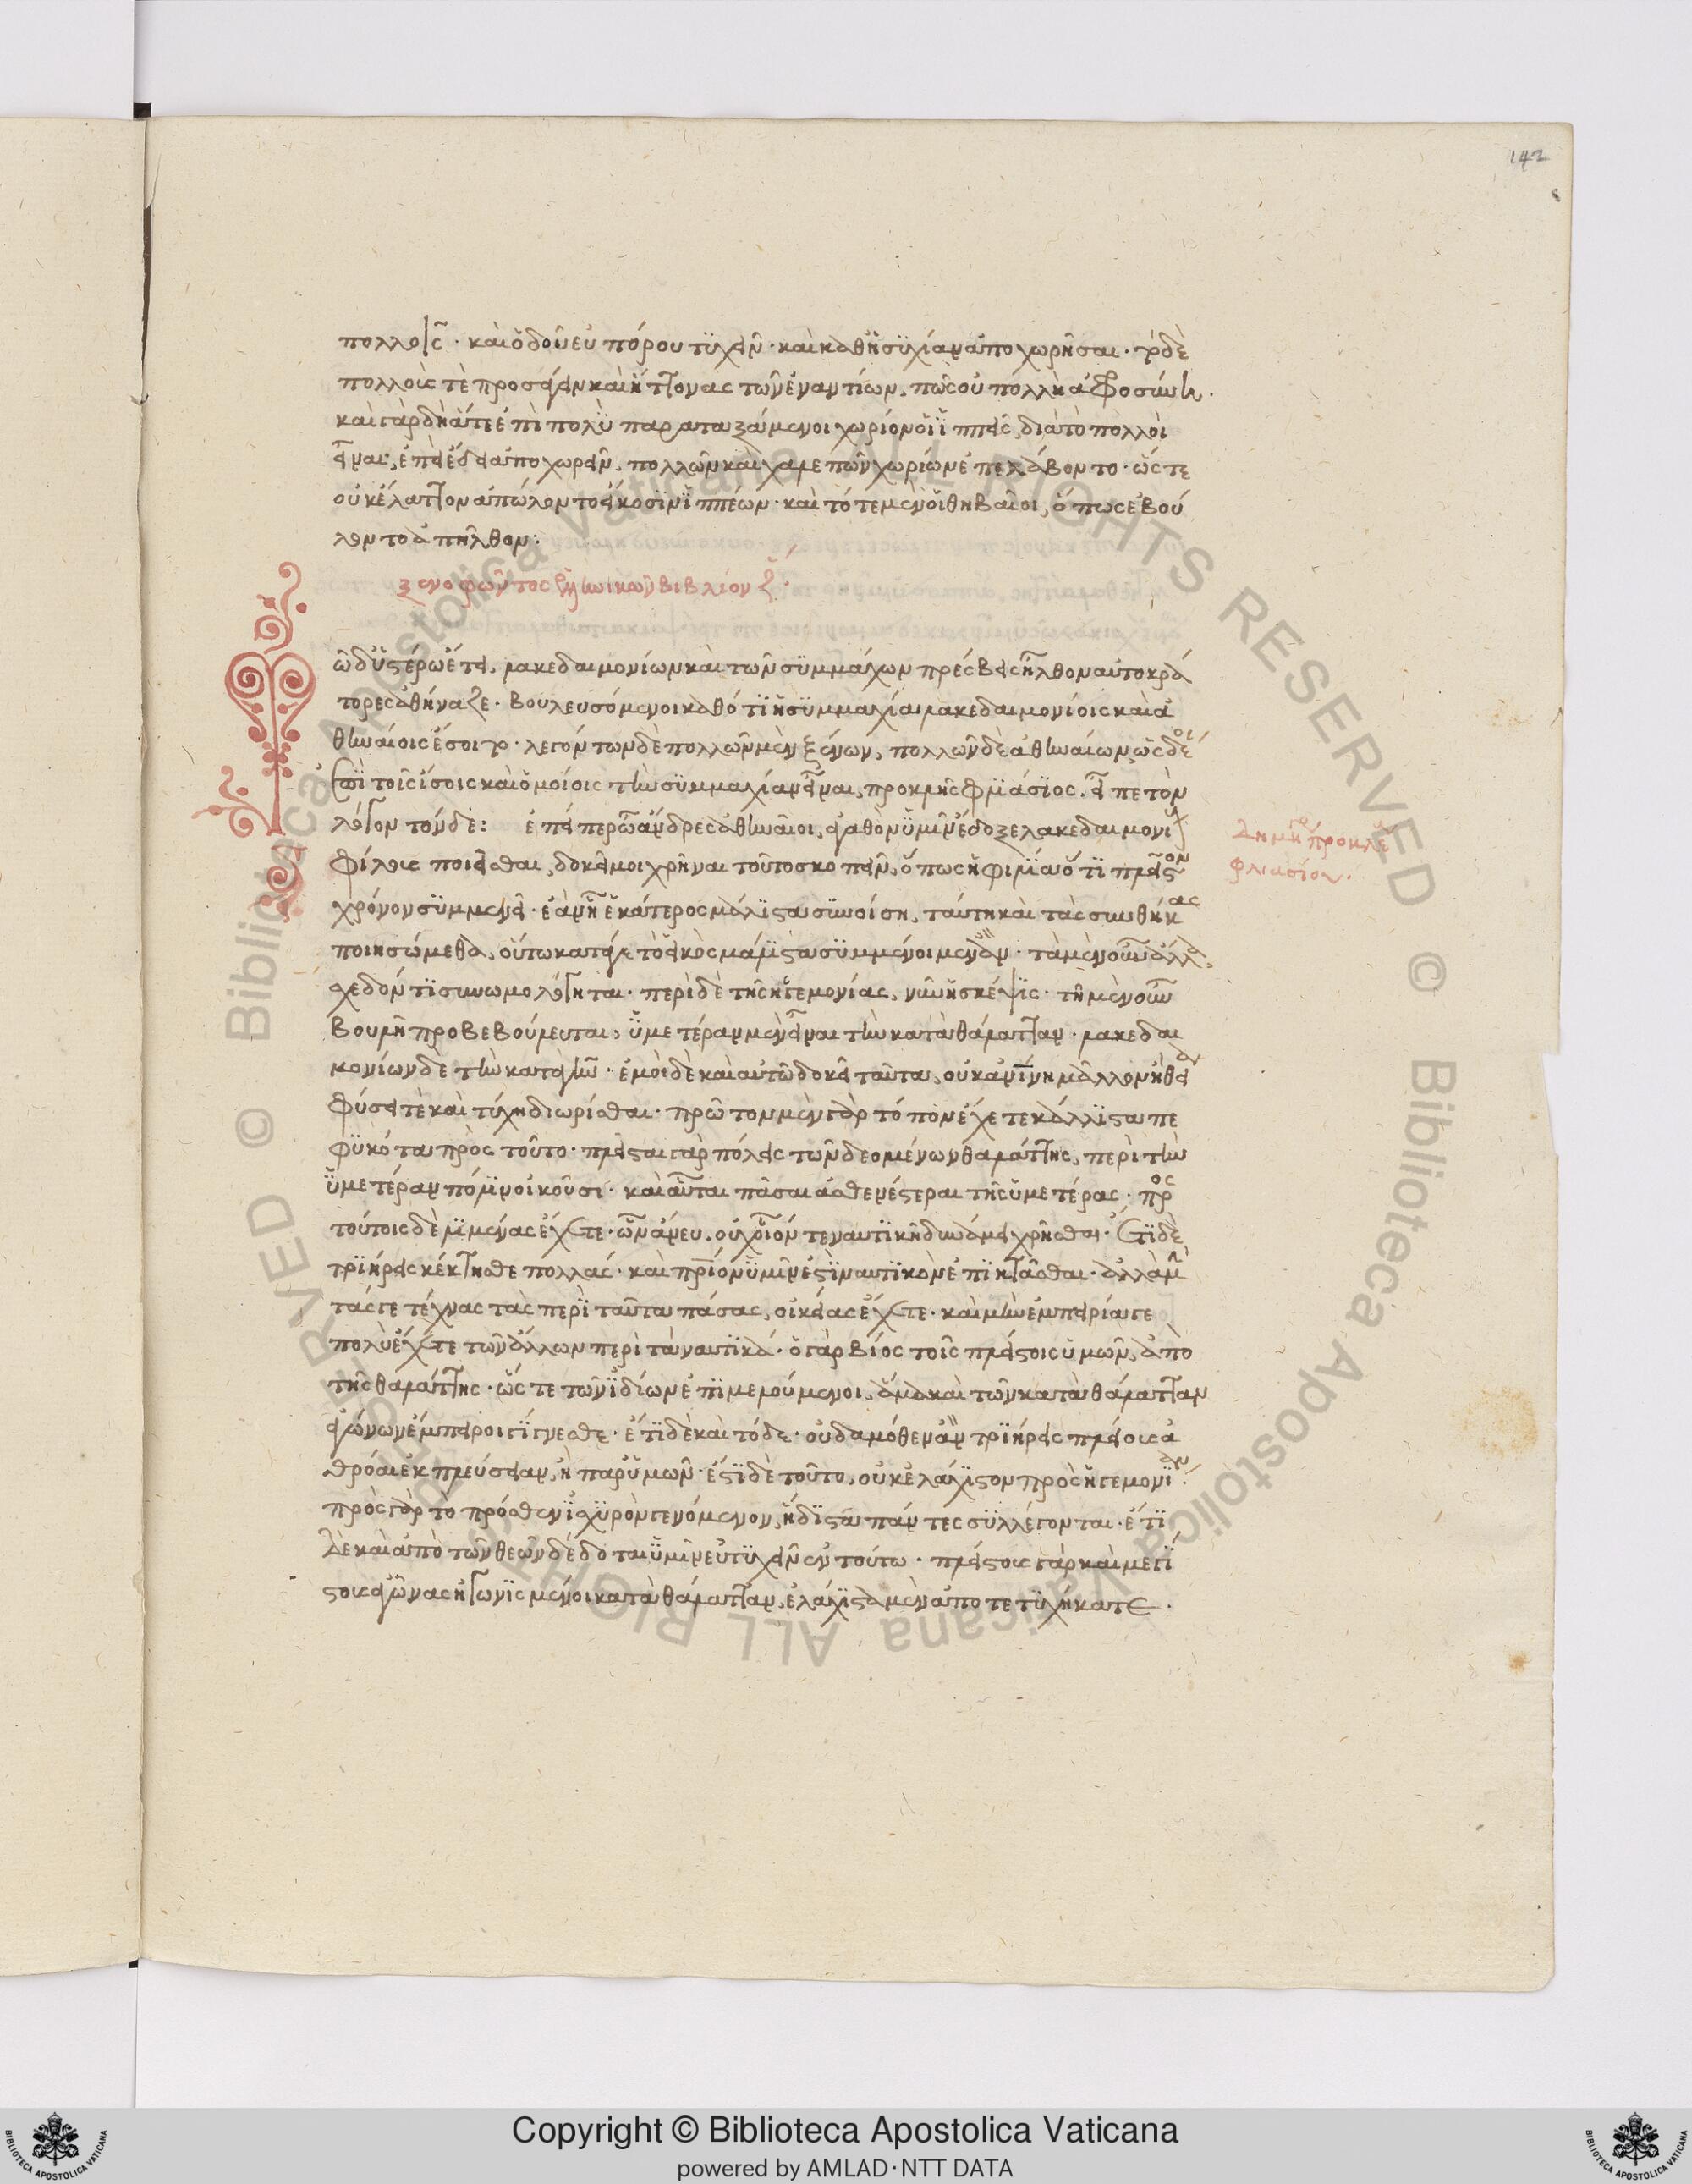 142
πολλοῖς. καὶ ὁδοῦ εὐπόρου τυχεῖν. καὶ καθ' ἡσυχίαν ἀποχωρῆσαι. τὸ δὲ
πολλοῖς τὲ προσάγειν καὶ ἥττονας τῶν ἐναντίων, πῶς οὐ πολλὴ ἀφροσύνη.
καὶ γὰρ δὴ ἅτε ἐπὶ πολὺ παραταξάμενοι χωρίον οἱ ἱππεῖς, διὰ τὸ πολλοὶ
εἶναι, ἐπεὶ ἔδει ἀποχωρεῖν, πολλῶν καὶ χαλεπῶν χωρίων ἐπελάβοντο. ὥστε
οὐκ ἔλαττον ἀπώλοντο εἴκοσιν ἱππέων. καὶ τότε μὲν οἱ θηβαῖοι, ὅπως ἐβού
λοντο ἀπῆλθον:
ξενοφῶντος ἑλληνικῶν βιβλίον ζ.
τῶ δ' ὑστέρω ἔτει, λακεδαιμονίων καὶ τῶν συμμάχων πρέσβεις ἦλθον αὐτοκρά
τορες ἀθήναζε. βουλευσόμενοι καθότι ἡ συμμαχία λακεδαιμονίοις καὶ ἀ
θηναίοις ἔσοιτο. λεγόντων δὲ πολλῶν μὲν ξένων, πολλῶν δὲ ἀθηναίων, ὡς δέοι
ἐπὶ τοῖς ἴσοις καὶ ὁμοίοις τὴν συμμαχίαν εἶναι, προκλῆς φλιάσιος, εἶπε τὸν
λόγον τόνδε: ἐπείπερ ὦ ἄνδρες ἀθηναῖοι, ἀγαθὸν ὑμῖν ἔδοξε λακεδαιμονί
Δημηγο προκλέους
φίλους ποιεῖσθαι, δοκεῖ μοι χρῆναι τοῦτο σκοπεῖν, ὅπως ἡ φιλία ὅτι πλεῖστον
φλιασίου.
χρόνον συμμενεῖ. ἐὰν ᾗ ἑκάτερος μάλιστα συνοίση, ταύτη καὶ τὰς συνθήκας
ποιησώμεθα, οὕτω κατά γε τὸ εἰκὸς μάλιστα συμμένοιμεν ἄν. τὰ μὲν οὖν ἄλλα,
σχεδόν τι συνωμολόγηται. περὶ δὲ τῆς ἡγεμονίας, νῦν ἡ σκέψις. τῆ μὲν οὖν
βουλῆ προβεβούλευται, ὑμετέραν μὲν εἶναι τὴν κατὰ θάλατταν. λακεδαι
μονίων δὲ τὴν κατὰ γῆν. ἐμοὶ δὲ καὶ αὐτῶ δοκεῖ ταῦτα, οὐκ ἀνθρωπίνη μᾶλλον ἢ θεία
φύσει τὲ καὶ τύχη διωρίσθαι. πρῶτον μὲν γὰρ τόπον ἔχετε κάλλιστα πε
φυκότα πρὸς τοῦτο. πλεῖσται γὰρ πόλεις τῶν δεομένων θαλάττης, περὶ τὴν
ὑμετέραν πόλιν οἰκοῦσι. καὶ αὗται πᾶσαι ἀσθενέστεραι τῆς ὑμετέρας. πρὸς
τούτοις δὲ λιμένας ἔχετε. ὧν ἄνευ, οὐχ οἷόν τε ναυτικῆ δυνάμει χρῆσθαι. ἔτι δὲ
τριήρεις κέκτησθε πολλάς. καὶ πάτριον ὑμῖν ἐστὶ ναυτικὸν ἐπικτᾶσθαι. ἀλλὰ μὴν
τάς τε τέχνας τὰς περὶ ταῦτα πάσας, οἰκείας ἔχετε. καὶ μὴν ἐμπειρία τε
πολὺ ἔχετε τῶν ἄλλων περὶ τὰ ναυτικά. ὁ γὰρ βίος τοῖς πλείστοις ὑμῶν, ἀπὸ
τῆς θαλάττης. ὥστε τῶν ἰδίων ἐπιμελούμενοι, ἅμα καὶ τῶν κατὰ θάλατταν
ἀγώνων ἔμπειροι γίγνεσθε. ἔτι δὲ καὶ τόδε. οὐδαμόθεν ἂν τριήρεις πλείους ἀ
θρόαι ἐκπλεύσειαν, ἢ παρ' ὑμῶν. ἔστι δὲ τοῦτο, οὐκ ἐλάχιστον πρὸς ἡγεμονίαν.
πρὸς γὰρ τὸ πρόσθεν ἰσχυρὸν γενόμενον, ἥδιστα πάντες συλλέγονται. ἔτι
δὲ καὶ ἀπὸ τῶν θεῶν δέδοται ὑμῖν εὐτυχεῖν ἐν τούτω. πλείστους γὰρ καὶ μεγί
στους ἀγῶνας ἠγωνισμένοι κατὰ θάλατταν, ἐλάχιστα μὲν ἀποτετυχήκατε.
Copyright © Biblioteca Apostolica Vaticana
powered by AMLAD·NTT DATA